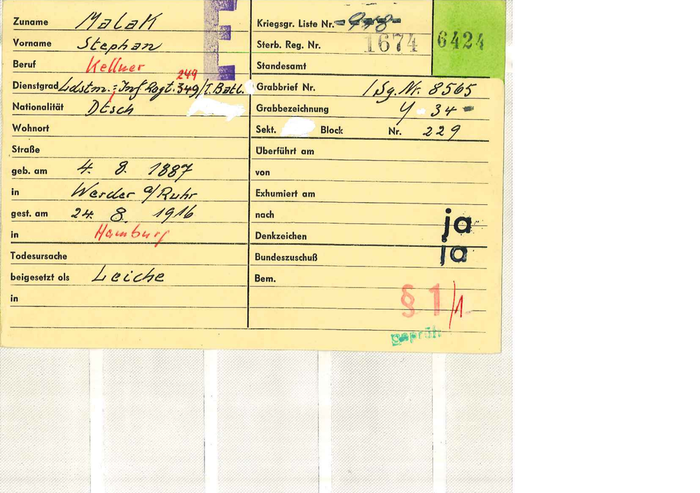 Zuname Malak
Vorname Stephan
Beruf Kellner
249
Dienstgrad Ldstm.; Inf Regt. 349/I. Batl.
Nationalität Dtsch
Wohnort
Straße
geb. am 4. 8. 1887
in Werder a/Ruhr
gest. am 24. 8. 1916
in Hamburg
Todesursache
beigesetzt als Leiche
in
Kriegsgr. Liste Nr.
Sterb. Reg. Nr. 1674 6424
Standesamt
Grabbrief Nr. / Sg. Nr. 8565
Grabbezeichnung Y 34
Sekt. Block Nr. 229
Überführt am
von
Exhumiert am
nach
Denkzeichen ja
Bundeszuschuß ja
Bem.
§ 1/1
geprüft